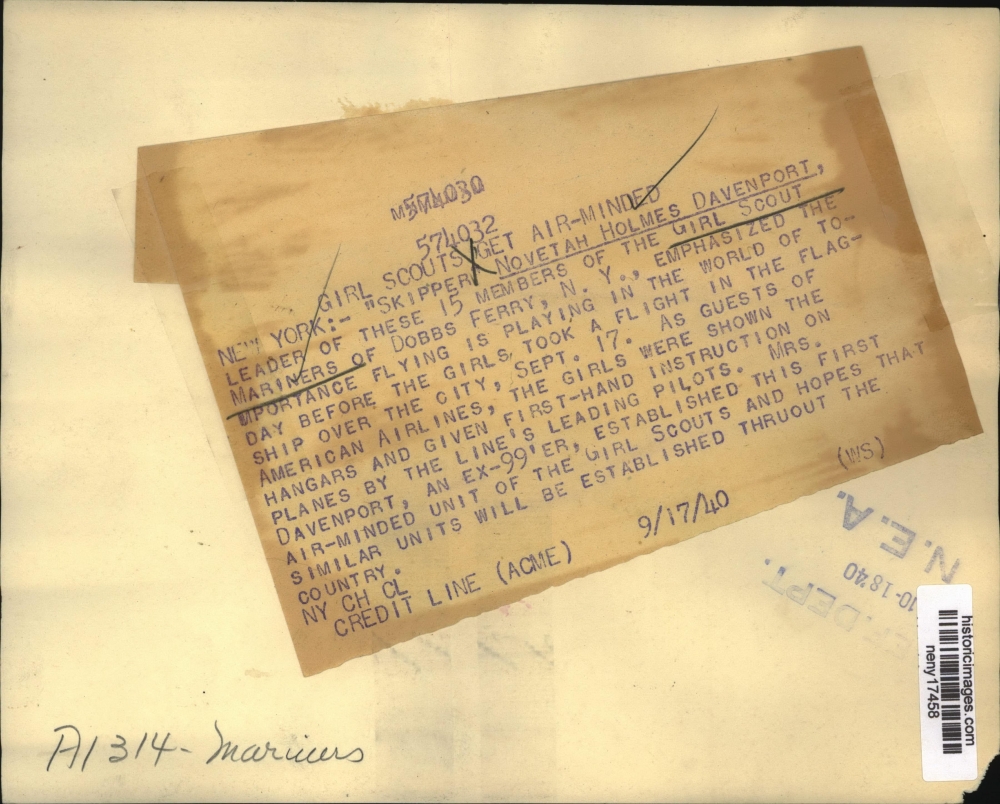 574030
574032
GIRL SCOUTS GET AIR-MINDED
NEW YORK:- "SKIPPER" NOVETAH HOLMES DAVENPORT,
LEADER OF THESE 15 MEMBERS OF THE GIRL SCOUT
MARINERS OF DOBBS FERRY, N. Y., EMPHASIZED THE
MPORTANCE FLYING IS PLAYING IN THE WORLD OF TO-
DAY BEFORE THE GIRLS TOOK A FLIGHT IN THE FLAG-
SHIP OVER THE CITY, SEPT. 17. AS GUESTS OF
AMERICAN AIRLINES, THE GIRLS WERE SHOWN THE
HANGARS AND GIVEN FIRST-HAND INSTRUCTION ON
PLANES BY THE LINE'S LEADING PILOTS. MRS.
DAVENPORT, AN EX-99'ER, ESTABLISHED THIS FIRST
AIR-MINDED UNIT OF THE GIRL SCOUTS AND HOPES THAT
SIMILAR UNITS WILL BE ESTABLISHED THRUOUT THE
COUNTRY.
NY CH CL
CREDIT LINE (ACME) 9/17/40 (WS)
N.E.A.
10-18'40
DEPT.
historicimages.com
neny17458
A1314- Mariners